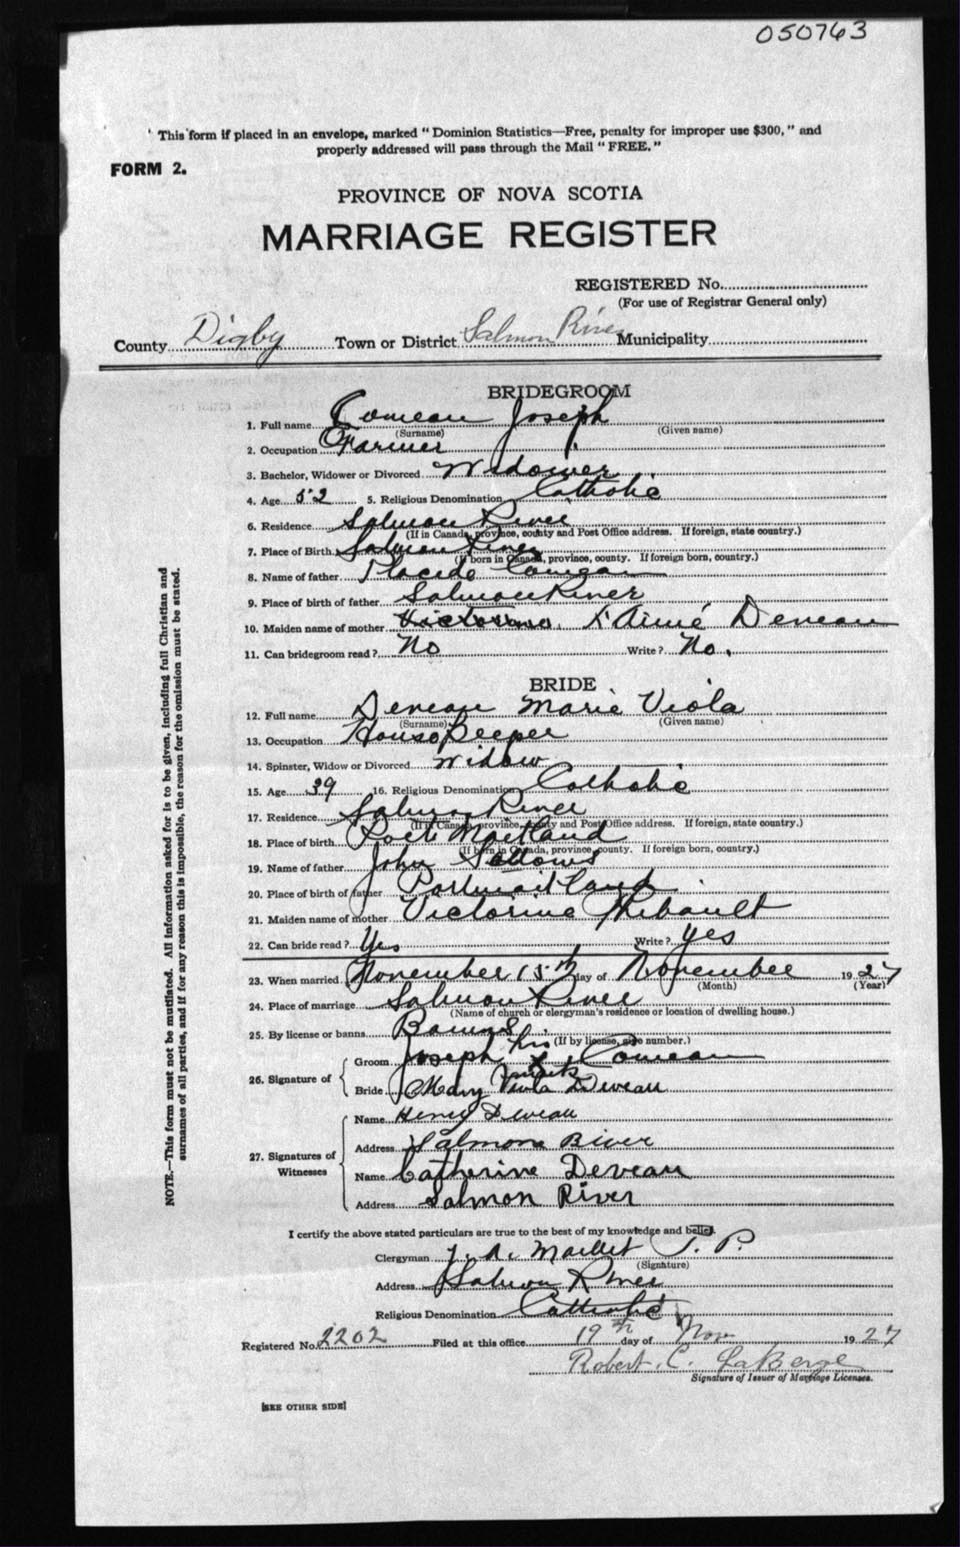 050763
' This form if placed in an envelope, marked "Dominion Statistics—Free, penalty for improper use $300," and
properly addressed will pass through the Mail "FREE."
FORM 2.
PROVINCE OF NOVA SCOTIA
MARRIAGE REGISTER
REGISTERED No.
(For use of Registrar General only)
County Digby Town or District Salmon River Municipality
BRIDEGROOM
1. Full name Comeau Joseph
(Surname) (Given name)
2. Occupation Farmer
3. Bachelor, Widower or Divorced Widower
4. Age 52 5. Religious Denomination Catholic
6. Residence Salmon River
(If in Canada, province, county and Post Office address. If foreign, state country.)
7. Place of Birth Salmon River
(If born in Canada, province, county. If foreign born, country.)
8. Name of father Placide Comeau
9. Place of birth of father Salmon River
10. Maiden name of mother Deveau
11. Can bridegroom read? No Write? No.
BRIDE
12. Full name Deveau Marie Viola
(Surname) (Given name)
13. Occupation House Keeper
14. Spinster, Widow or Divorced Widow
15. Age 39 16. Religious Denomination Catholic
17. Residence Salmon River
(If in Canada, province, county and Post Office address. If foreign, state country.)
18. Place of birth Port Maitland
(If born in Canada, province, county. If foreign born, country.)
19. Name of father John Sallows
20. Place of birth of father Portmaitland
21. Maiden name of mother Victorine Thibault
22. Can bride read? Yes Write? yes
23. When married November 15th day of November 1927
(Month) (Year)
24. Place of marriage Salmon River
(Name of church or clergyman's residence or location of dwelling house.)
25. By license or banns Banns
(If by license, give number.)
26. Signature of Groom Joseph his X mark Comeau
Bride Mary Viola Deveau
27. Signatures of Witnesses Name Henry Deveau
Address Salmon River
Name Catherine Deveau
Address Salmon River
I certify the above stated particulars are true to the best of my knowledge and belief.
Clergyman Maillet P.
(Signature)
Address Salmon River
Religious Denomination Catholic
Registered No. 2202 Filed at this office 19th day of Nov 1927
Robert. C. LaBerge
Signature of Issuer of Marriage Licenses.
[SEE OTHER SIDE]
NOTE.—This form must not be mutilated. All information asked for is to be given, including full Christian and
surnames of all parties, and if for any reason this is impossible, the reason for the omission must be stated.